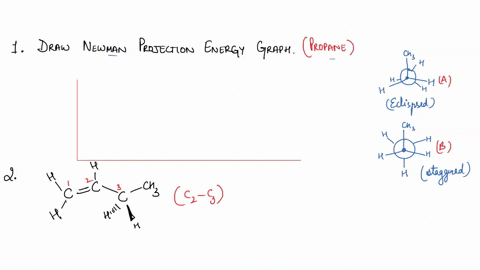 1. DRAW NEWMAN PROJECTION ENERGY GRAPH. (PROPANE)
CH3
H
H H (A)
H H
(Eclipsed)
CH3
H H
(B)
H H
H
(staggered)
2.
H
H 1 2 3 CH3
C = C C
H H'''' H
(C2-C3)